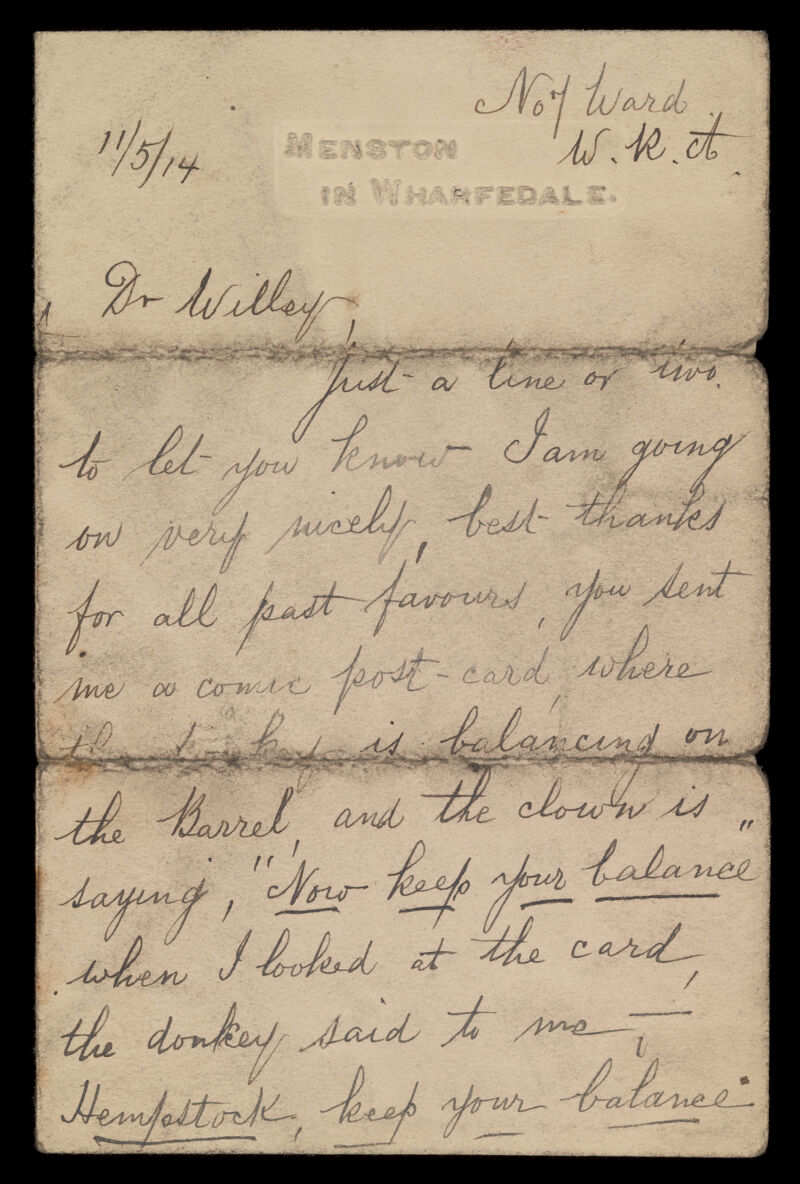 No 7 Ward
11/5/14
W. R. A.
MENSTON
IN WHARFEDALE.
Dr Willey,
Just a line or two.
to let you know I am going
on very nicely, best thanks
for all past favours, you sent
me a comic post-card, where
is balancing on
the Barrel, and the clown is
saying, "Now keep your balance"
when I looked at the card,
the donkey said to me —
Hempstock, keep your balance"